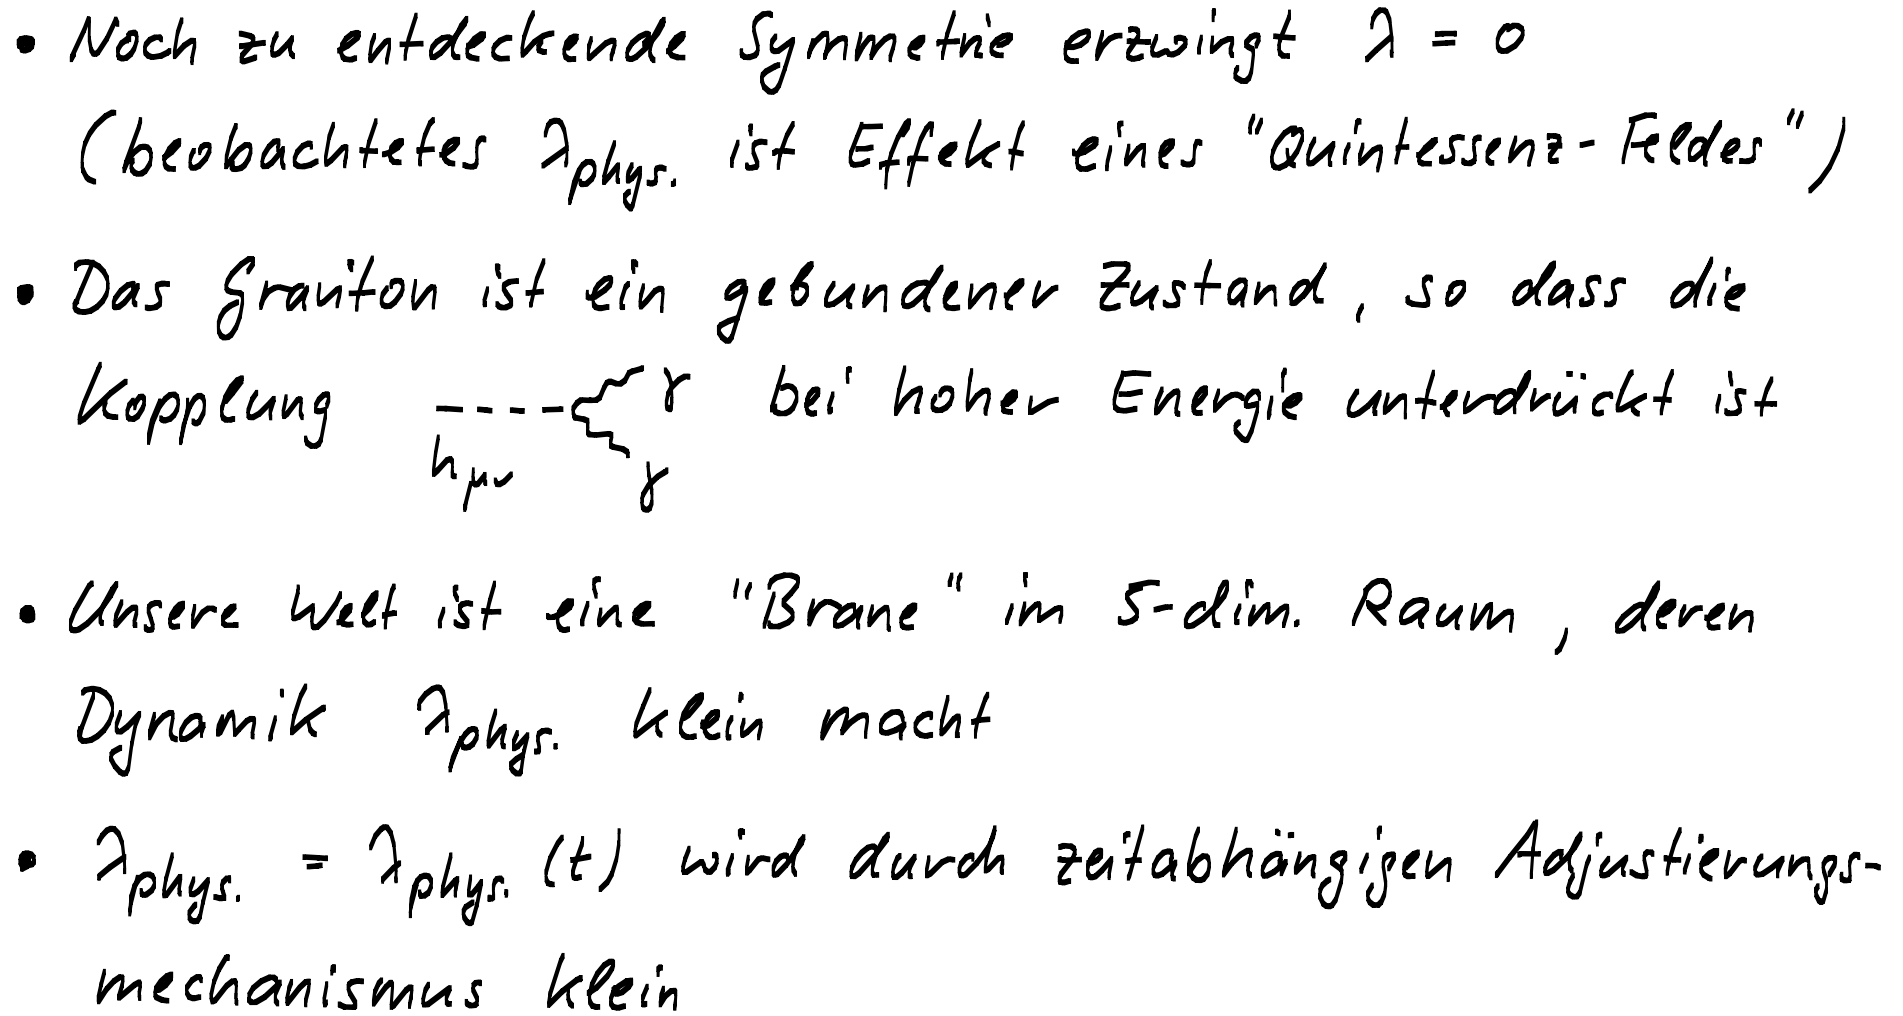 • Noch zu entdeckende Symmetrie erzwingt λ = 0
(beobachtetes λphys. ist Effekt eines "Quintessenz-Feldes")
• Das Graviton ist ein gebundener Zustand, so dass die
Kopplung hμν γ γ bei hoher Energie unterdrückt ist
• Unsere Welt ist eine "Brane" im 5-dim. Raum, deren
Dynamik λphys. klein macht
• λphys. = λphys. (t) wird durch zeitabhängigen Adjustierungs-
mechanismus klein